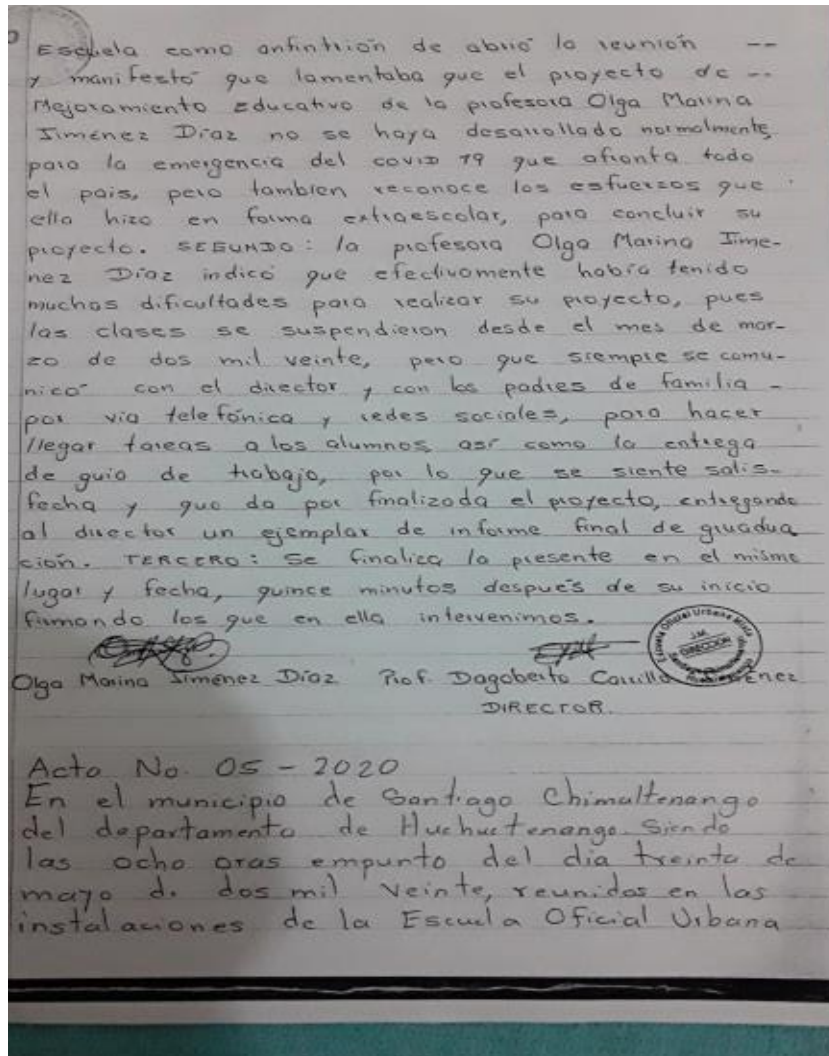 Escuela como anfintrión de abrió la reunión --
y manifestó que lamentaba que el proyecto de --
Mejoramiento Educativo de la profesora Olga Marina
Jiménez Díaz no se haya desarrollado normalmente,
para la emergencia del COVID 19 que afronta todo
el pais, pero tambien reconoce los esfuerzos que
ella hizo en forma extraescolar, para concluir su
proyecto. SEGUNDO: la profesora Olga Marina Jime-
nez Díaz indicó que efectivamente había tenido
muchas dificultades para realizar su proyecto, pues
las clases se suspendieron desde el mes de mar-
zo de dos mil veinte, pero que siempre se comu-
nicó con el director y con los padres de familia -
por via telefónica y redes sociales, para hacer
llegar tareas a los alumnos así como la entrega
de guia de trabajo, por lo que se siente satis-
fecha y que da por finalizada el proyecto, entregando
al director un ejemplar de informe final de gruadua
ción. TERCERO: Se finaliza la presente en el mismo
lugar y fecha, quince minutos después de su inicio
firmando los que en ella intervenimos.
Escuela Oficial Urbana Mixta
J.M.
DIRECCION
Olga Marina Jiménez Díaz Prof. Dagoberto Carrillo
DIRECTOR.
Acta No. 05 - 2020
En el municipio de Santiago Chimaltenango
del departamento de Huehuetenango. Siendo
las ocho oras empunto del día treinta de
mayo d. dos mil veinte, reunidos en las
instalaciones de la Escuela Oficial Urbana